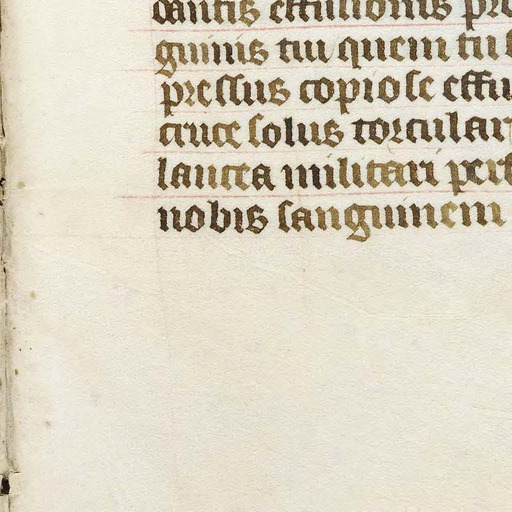 dantis effusionis pre
guinis tui quem tu
pressus copiose effu
cruce solus torcular
lancea militari perf
nobis sanguinem